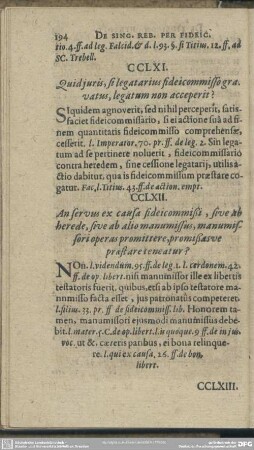 194 DE SING. REB. PER FIDEIC.
tio. 4. ff. ad leg. Falcid. & d. l. 95. §. si Titius. 12. ff. ad
SC. Trebell.
CCLXI.
Quid juris, si legatarius fideicommisso gra-
vatus, legatum non acceperit?
SIquidem agnoverit, sed nihil perceperit, satis-
faciet fideicommissario, si ei actione suâ ad fi-
nem quantitatis fideicommisso comprehensæ,
cesserit. l. Imperator. 70. pr. ff. de leg. 2. Sin lega-
tum ad se pertinere noluerit, fideicommissario
contra heredem, sine cessione legatarij, utilis a-
ctio dabitur, qua is fideicommissum præstare co-
gatur. Fac, l. Titius. 43. ff. de action. empt.
CCLXII.
An servus ex causa fideicommissi, sive ab
herede, sive ab alio manumissus, manumis-
sori operas promittere, promissasve
præstare teneatur?
NOn. l. videndum. 95. ff. de leg. 1. l. cærdonem. 42.
ff. de op. libert. nisi manumissor ille ex libertis
testatoris fuerit, quibus, etsi ab ipso testatore ma-
numissio facta esset, jus patronatus competeret.
l. filius. 33. pr. ff de fideicommiss. lib. Honorem ta-
men, manumissori ejusmodi manumissus debe-
bit. l. mater. 5. C. de op. libert. l. is quoque. 9. ff. de in jus
voc. ut &. cæteris paribus, ei bona relinque-
re. l. qui ex causa. 26. ff. de bon.
libert.
CCLXIII.